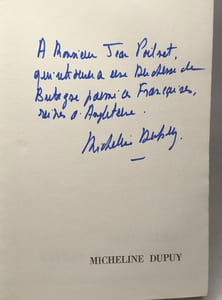 A Monsieur Jean
qui retrouvera une Duchesse de
Bretagne parmi ces Françaises,
reines d'Angleterre.
Micheline Dupuy
MICHELINE DUPUY